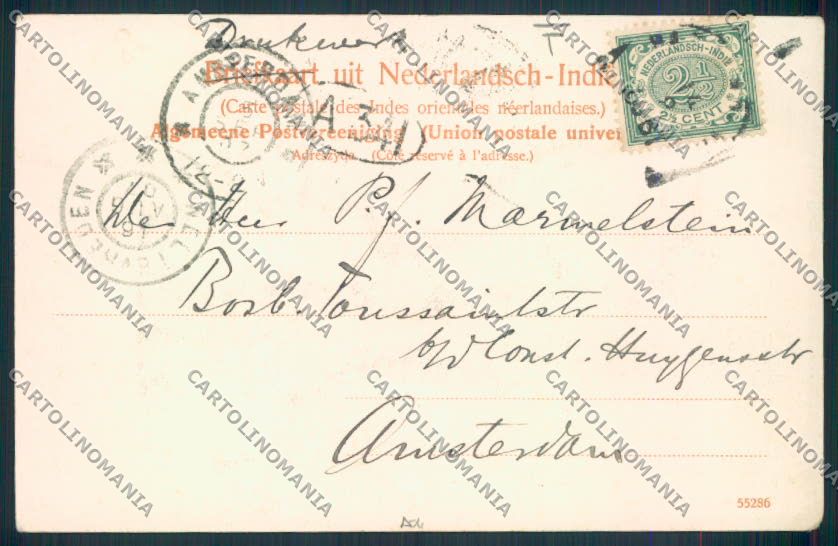 Drukwerk
Briefkaart uit Nederlandsch-Indië
(Carte postale des Indes orientales néerlandaises.)
Algemeene Postvereeniging (Union postale univer
Adreszijde. (Côté réservé à l'adresse.)
NEDERLANDSCH-INDIË
2½
2½ CENT
AMSTERDAM
WELTEVREDEN
De Heer P. J. Marmelstein
Bosb. Toussaintstr
b/d Const. Huygensstr
Amsterdam
55286
CARTOLINOMANIA